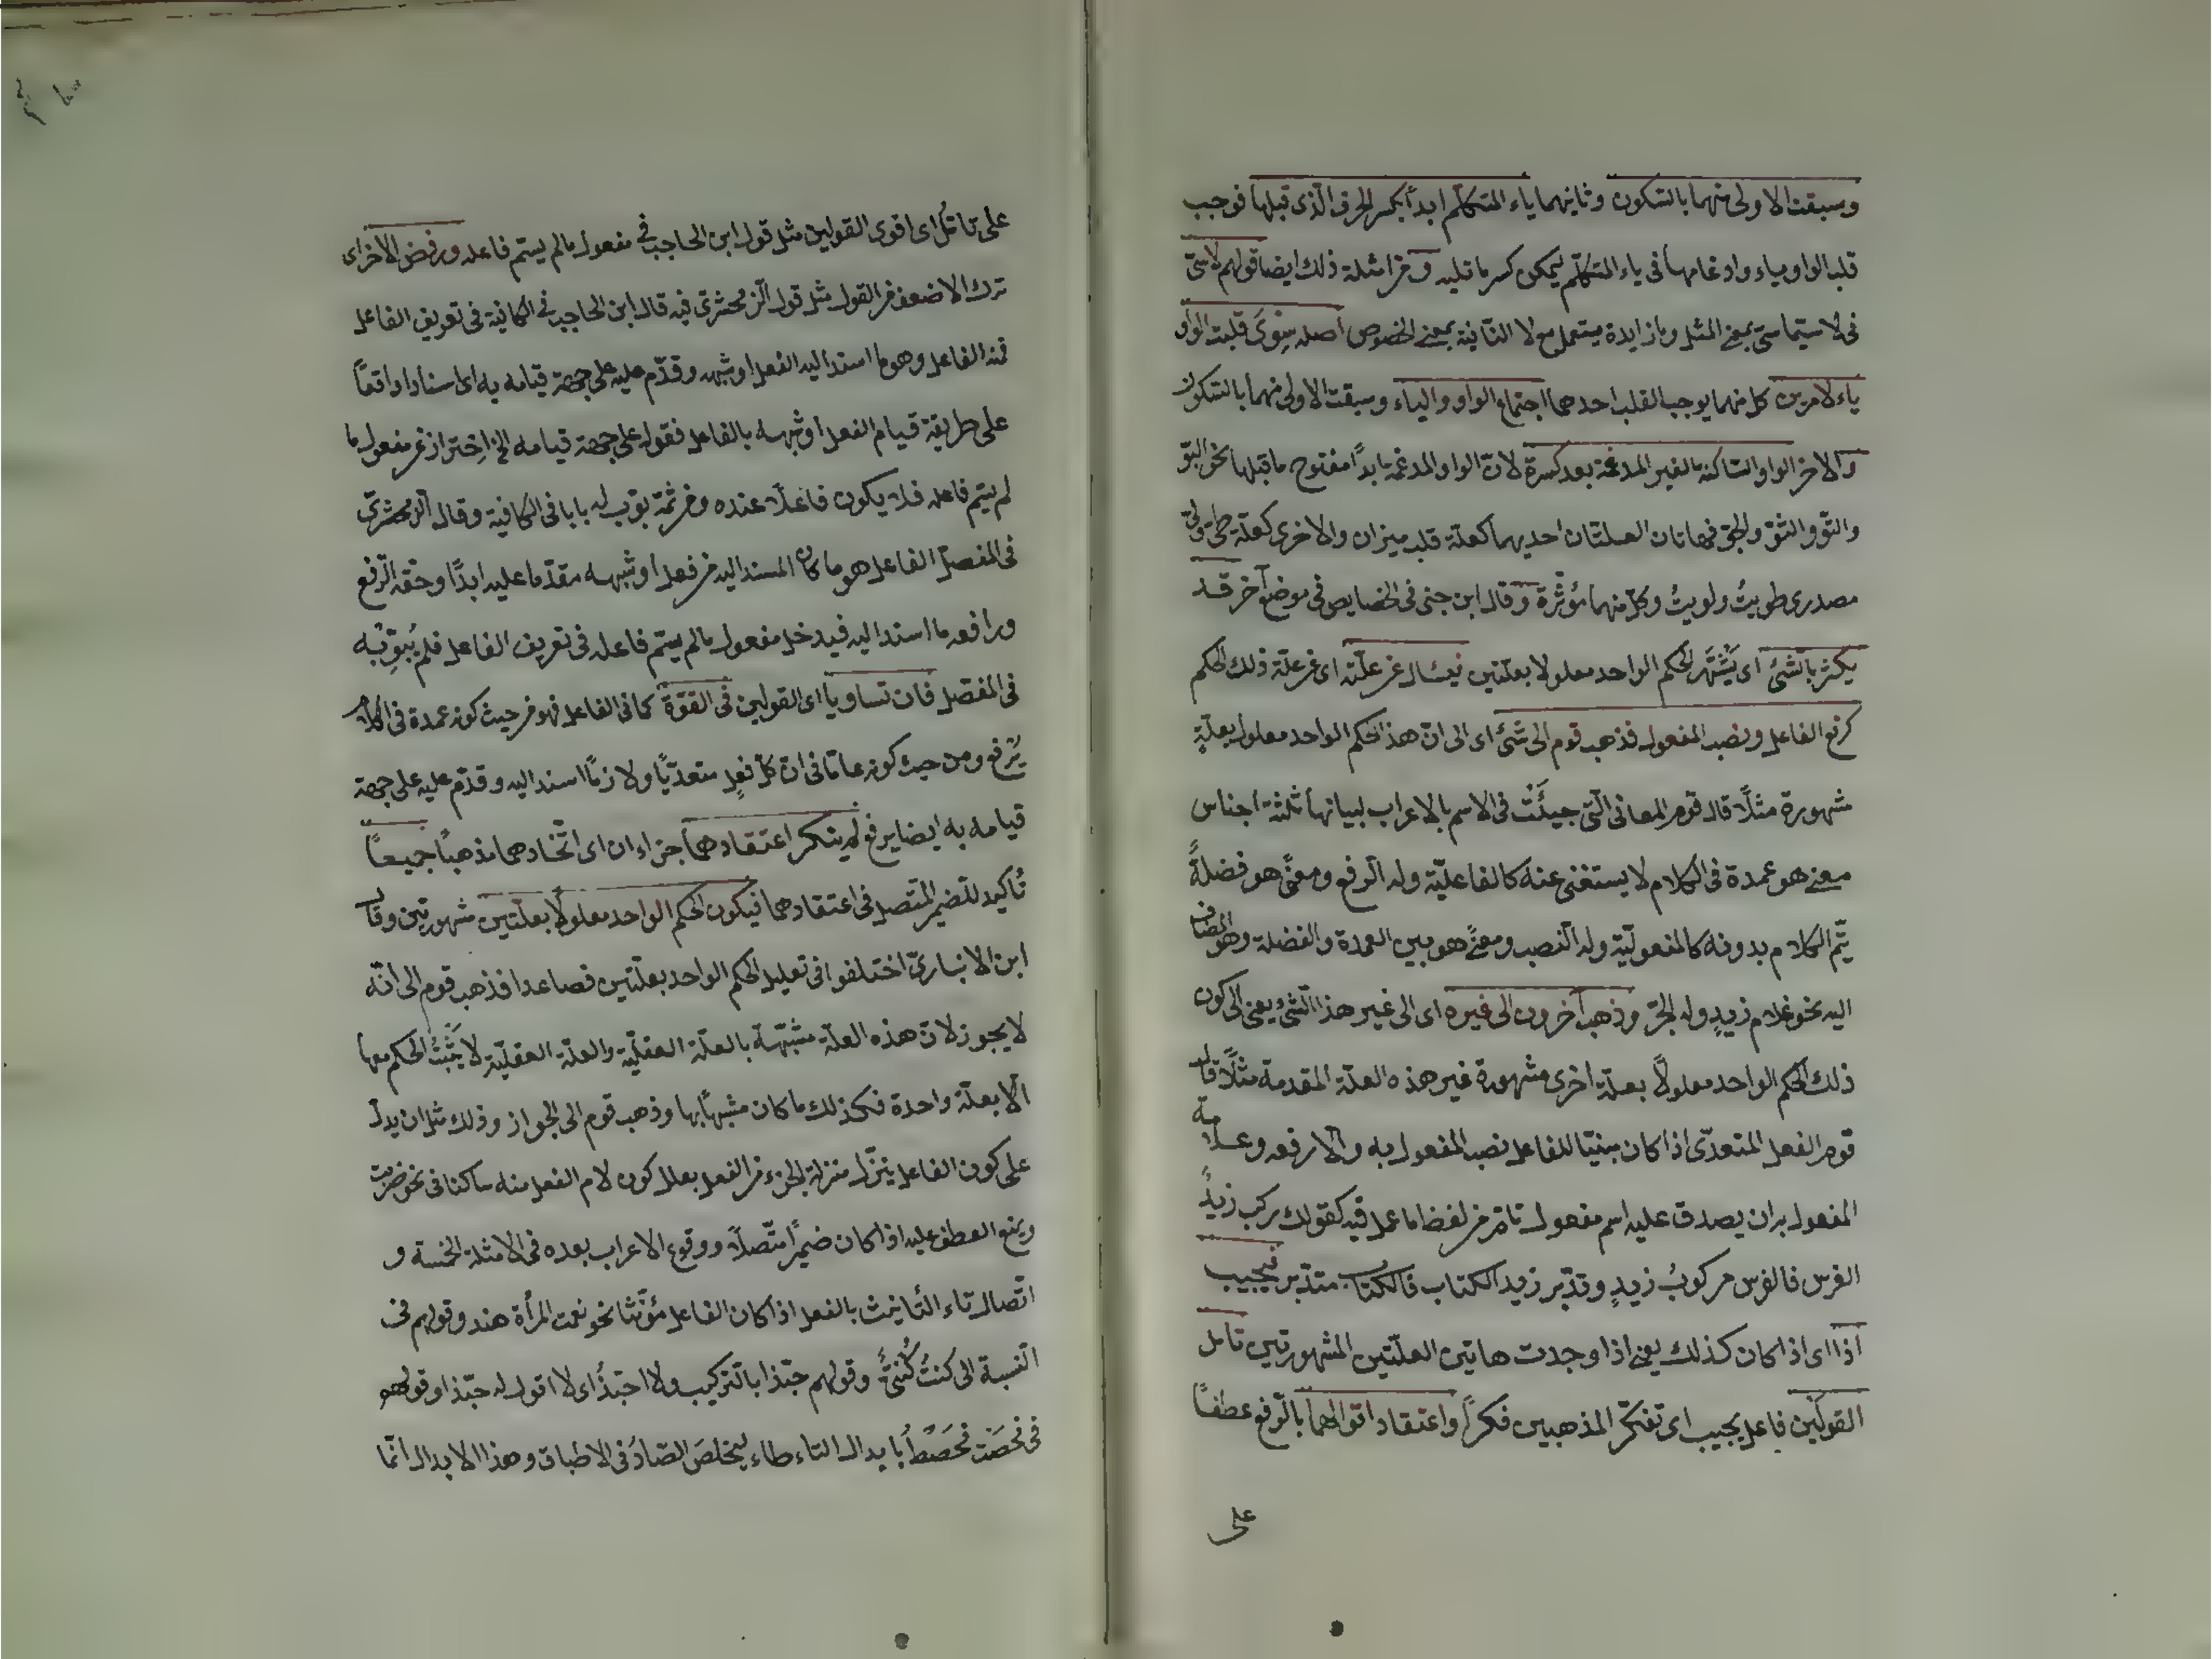 وسبقت الاولى منهما بالسكون وثانيهما ياء المتكلّم ابداً بكسر الحرف الّذى قبلها فوجب
قلب الواو ياء وادغامها فى ياء المتكلّم ليمكن كسر ما تليه ومن امثلة ذلك ايضا قولهم لا سىّ
فى لا سيّما سىّ بمعنى المثل وما زايدة يستعمل مع لا النّافية بمعنى الخصوص اصله سِوْىَ قلبت الواو
ياء لامرين كل منهما يوجب القلب احدهما اجتماع الواو والياء وسبقت الاولى منهما بالسكون
والاخر الواو الساكنة الغير المدغمة بعد كسرة لانّ الواو المدغمة ابداً مفتوح ما قبلها نحو البوّ
والتوّ والجوّ فهاتان العلّتان احديهما كعلّة قلب ميزان والاخرى كعلّة طىّ ولىّ
مصدرى طويتُ ولويتُ وكلّ منهما مُؤثّرة وقال ابن جنى فى الخصايص فى موضع آخر قد
يكثر بالشئ اى يَشْتَهر الحكم الواحد معلولا بعلّتين فيسال عن علّته اى عن علّة ذلك الحكم
كرفع الفاعل ونصب المفعول فذهب قوم الى شئ اى الى انّ هذا الحكم الواحد معلول بعلّةٍ
مشهورة مثلًا قال قوم المعانى الّتى جيئَتْ فى الاسم بالاعراب لبيانها ثلثة اجناس
معنى هو عمدة فى الكلام لا يستغنى عنه كالفاعليّة وله الرفع ومعنًى هو فضلةً
يتّم الكلام بدونه كالمفعوليّة وله النصب ومعنًى هو بين العمدة والفضلة وهو المضاف
اليه نحو غلام زيدٍ وله الجرّ وذهب آخرون الى غيره اى الى غير هذا الشئ يعنى الى كون
ذلك الحكم الواحد معلولًا بعلّة اخرى مشهورة غير هذه العلّة المقدمة مثلًا قال
قوم الفعل المتعدّى اذا كان مبنيّا للفاعل نصب المفعول به والّا رفعه وعلامة
المفعول به ان يصدق عليه اسم مفعول تامّ من لفظ ما عمل فيه كقولك ركب زيدٌ
الفرس فالفرس مركوبُ زيدٍ وتدبّر زيد الكتاب فالكتاب متدبّر فيجيب
اذا اى اذا كان كذلك يعنى اذا وجدت هاتين العلّتين المشهورتين تامل
القولين فاعل يجيب اى تفكّر المذهبين فكرًا واعتقاد اقواهما بالرّفع عطفًا
على
على تامّل اى اقوى القولين مثل قول ابن الحاجب فى مفعول ما لم يسم فاعله ورفض الاخر اى
ترك الاضعف من القول مثل قول الزمخشرى فيه قال ابن الحاجب فى الكافية فى تعريف الفاعل
فمنه الفاعل وهو ما اسند اليه الفعل او شبهه وقدّم عليه على جهة قيامه به اى اسنادا واقعًا
على طريقة قيام الفعل او شبهه بالفاعل فقوله على جهة قيامه الخ اِحتراز عن مفعول ما
لم يسم فاعله فلا يكون فاعلًا عنده ومن ثمّة بوّب له بابا فى الكافية وقال الزمخشرىّ
فى المفصّل الفاعل هو ما كان المسند اليه من فعل او شبهه مقدّما عليه ابدًا وحقّه الرّفع
ورافعه ما اسند اليه فيدخل مفعول ما لم يسم فاعله فى تعريف الفاعل فلم يُبَوِّبْه
فى المفصّل فان تساويا اى القولين فى القوّة كما فى الفاعل فهو من حيث كونه عمدة فى الكلام
يُرفع ومن حيث كونه عامّا فى انّ كلّ فعلٍ متعدّيًا ولازمًا اسند اليه وقدّم عليه على جهة
قيامه به ايضا يرفع لم ينكر اعتقادهما جزاء ان اى اتّخادهما مذهبًا جميعًا
تاكيد للضمير المتّصل فى اعتقادهما فيكون الحكم الواحد معلولًا بعلّتين مشهورتين وقال
ابن الانبارىّ اختلفوا فى تعليل الحكم الواحد بعلّتين فصاعدا فذهب قوم الى انّه
لا يجوز لانّ هذه العلّة مشبّهة بالعلّة العقليّة والعلّة العقليّة لا يَثْبُتُ الحكم معها
الّا بعلّة واحدة فكذلك ما كان مشبهًا بها وذهب قوم الى الجواز وذلك مثل ان يدلّ
على كون الفاعل ينزّل منزلة الجزء من الفعل بعلل كون لام الفعل منه ساكنا فى نحو ضربت
ويمنع العطف عليه اذا كان ضميرًا متّصلًا ووقوع الاعراب بعده فى الامثلة الخمسة و
اتّصال تاء التّانيث بالفعل اذا كان الفاعل مؤنّثا نحو نعمت المرأة هند وقولهم فى
النّسبة الى كنتُ كُنْتِىٌّ وقولهم حبّذا بالتركيب ولا احبّذُ اى لا اقول له حبّذا وقولهم
فى فحَصْت فحَصْطُ بابدال التاء طاء ليخلصَ الصّادُ فى الاطباق وهذا الابدال انّما